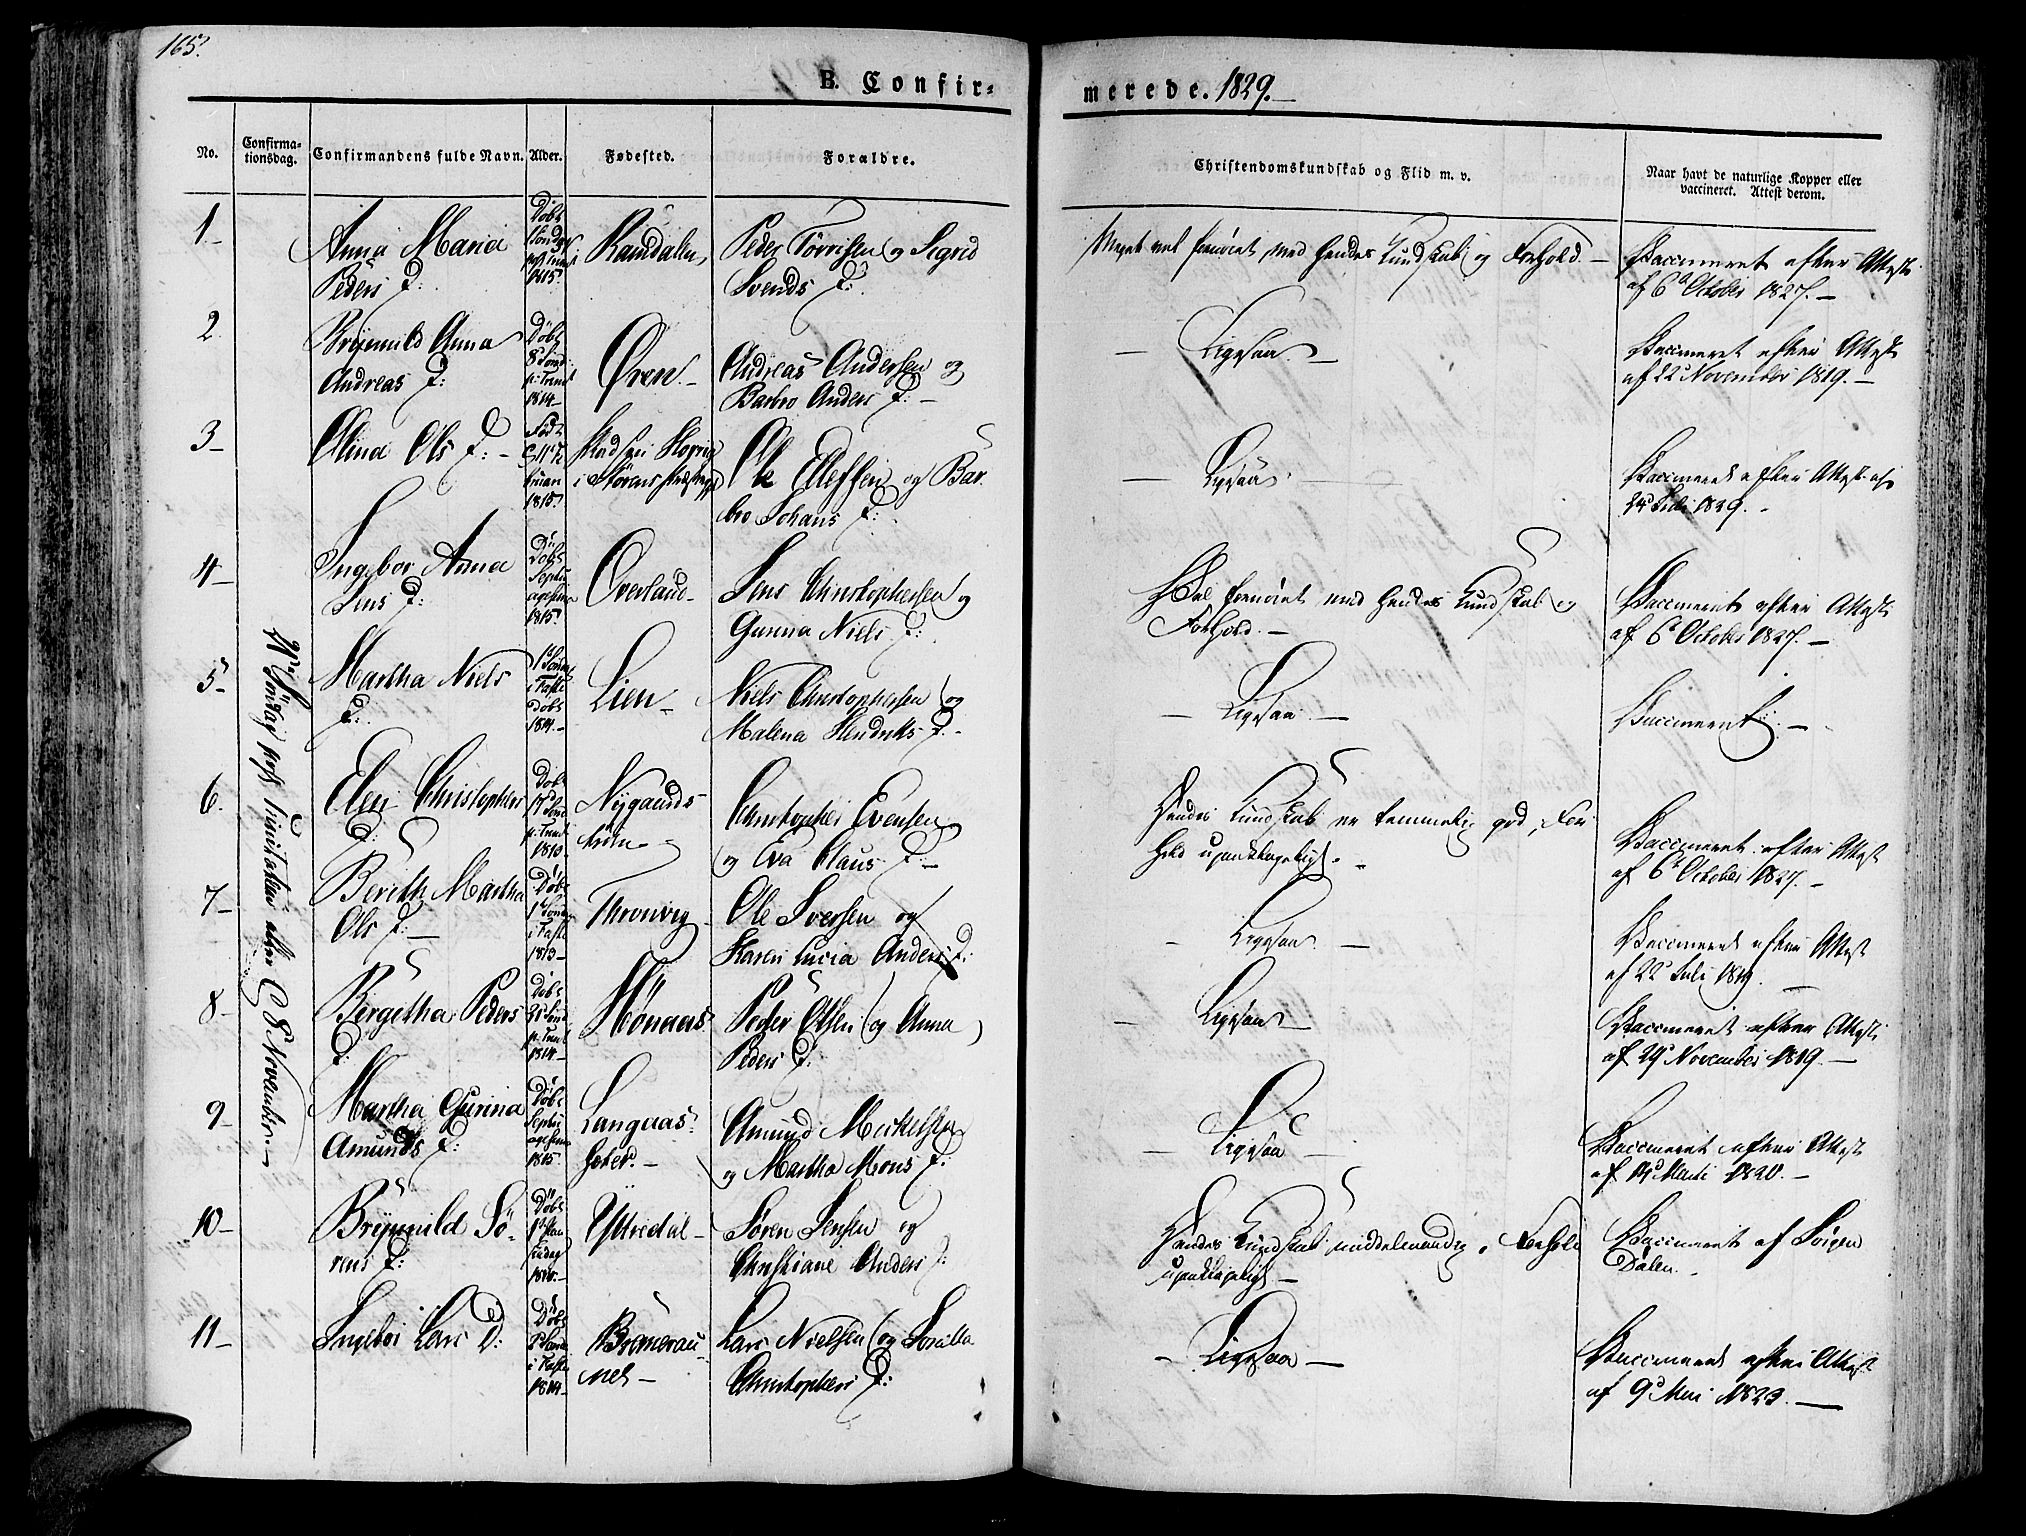 165.
B. Confir=
merede. 1829.
No.
Confirma-
tionsdag.
Confirmandens fulde Navn.
Alder.
Fødested.
Forældre.
Christendomskundskab og Flid m. v.
Naar havt de naturlige Kopper eller
vaccineret. Attest derom.
Søndag post Trinitatis eller 8 November
1
Anna Maria
Peders D:
Døbt
1815.
Ramdalen
Peder Tørrisen og Sigrid
Svends D:
Meget vel fornøiet med hendes Kundskab og Forhold. —
Vaccineret efter Attest
af 6 October 1827. —
2
Brynnild Anna
Andreas D:
Døbt
8 Sønd.
p. Trinit
1814 —
Øren. —
Andreas Andersen og
Barbro Anders D: —
— Ligesaa. —
Vaccineret efter Attest
af 22 November 1819. —
3 —
Olina Ols D: —
Født
1815
i Størens Præstegj
Ole Ellefsen og Bar
bro Johans D:
— Ligesaa —
Vaccineret efter Attest af
24 Juli 1829. —
4 —
Ingebor Anna
Jens D:
Døbt
Septu
agesima
1815
Overland —
Jens Christophersen og
Gunna Niels D:
Vel fornøiet med hendes Kundskab og
Forhold. —
Vaccineret efter Attest
af 6 October 1827. —
5 —
Martha Niels
D:
1 Sønd
i Faste
Døbt
1814. —
Lien —
Niels Christophersen og
Malena Hendriks D. —
— Ligesaa —
Vaccineret. —
6.
Elen Christophers
D:
Døbt
17 Sønd
p. Trinit
1813
Nygaards
Christopher Evensen
og Eva Claus D: —
Hendes Kundskab er temmelig god, For
hold upaaklageligt. —
Vaccineret efter Attest
af 6 October 1827. —
7 —
Berith Martha
Ols D: —
Døbt
1 Sønd
i Faste
1813 —
Thronvig —
Ole Iversen og
Karen Lucia Anders D:
— Ligesaa —
Vaccineret efter Attest
af 22 Juli 1819. —
8 —
Bergitha Peders
D:
Døbt
p. Trinit
1814 —
Hønaas
Peder Olsen og Anna
Peders D:
— Ligesaa —
Vaccineret efter Attest
af 24 November 1819. —
9 —
Martha Gurina
Amunds D:
Døbt
Septu
agesima
1815.
Langaas-
Amund Mikkelsen
og Martha Mons D:
— Ligesaa —
Vaccineret efter Attest
af 14 Martz 1820. —
10 —
Brynnild Sö-
rens D:
Døbt
Yttredal —
Søren Jensen og
Christiane Anders D:
Hendes Kundskab middelmaadig, Forhold
upaaklageligt —
Vaccineret af Jörgen
Dalen. —
11 —
Ingebor Lars D:
Døbt
2 Sønd
i Faste
1814 —
Lars Nielsen og Sirilla
Christophers D:
— Ligesaa —
Vaccineret efter Attest
af 9 Mai 1823. —